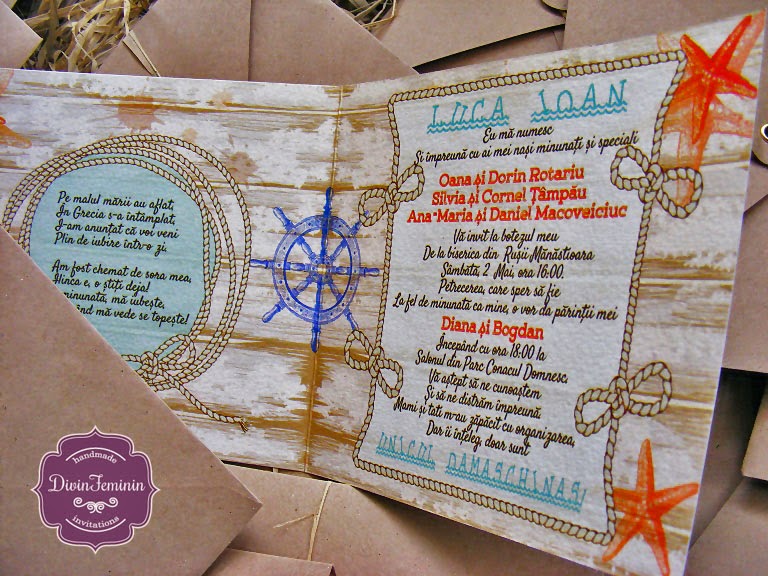 Pe malul mării au aflat,
În Grecia s-a întâmplat,
I-am anunțat că voi veni
Plin de iubire într-o zi.
Am fost chemat de sora mea,
Ilinca e, o știți deja!
minunată, mă iubește,
când mă vede se topește!
LUCA IOAN
Eu mă numesc
Și împreună cu ai mei nași minunați și speciali
Oana și Dorin Rotariu
Silvia și Cornel Țâmpău
Ana-Maria și Daniel Macoveiciuc
Vă invit la botezul meu
De la biserica din Rușii Mănăstioara
Sâmbătă, 2 Mai, ora 16:00.
Petrecerea, care sper să fie
La fel de minunată ca mine, o vor da părinții mei
Diana și Bogdan
Începând cu ora 18:00 la
Salonul din Parc Conacul Domnesc.
Vă aștept să ne cunoaștem
Și să ne distrăm împreună.
Mami și tati m-au zăpăcit cu organizarea,
Dar îi înțeleg, doar sunt
UNICUL DAMASCHINAS!
handmade
DivinFeminin
invitations